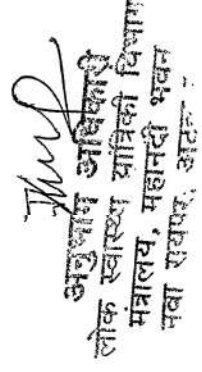 अनुभाग अधिकारी
लोक स्वास्थ्य यांत्रिकी विभाग
मंत्रालय, महानदी भवन
नवा रायपुर, अटल